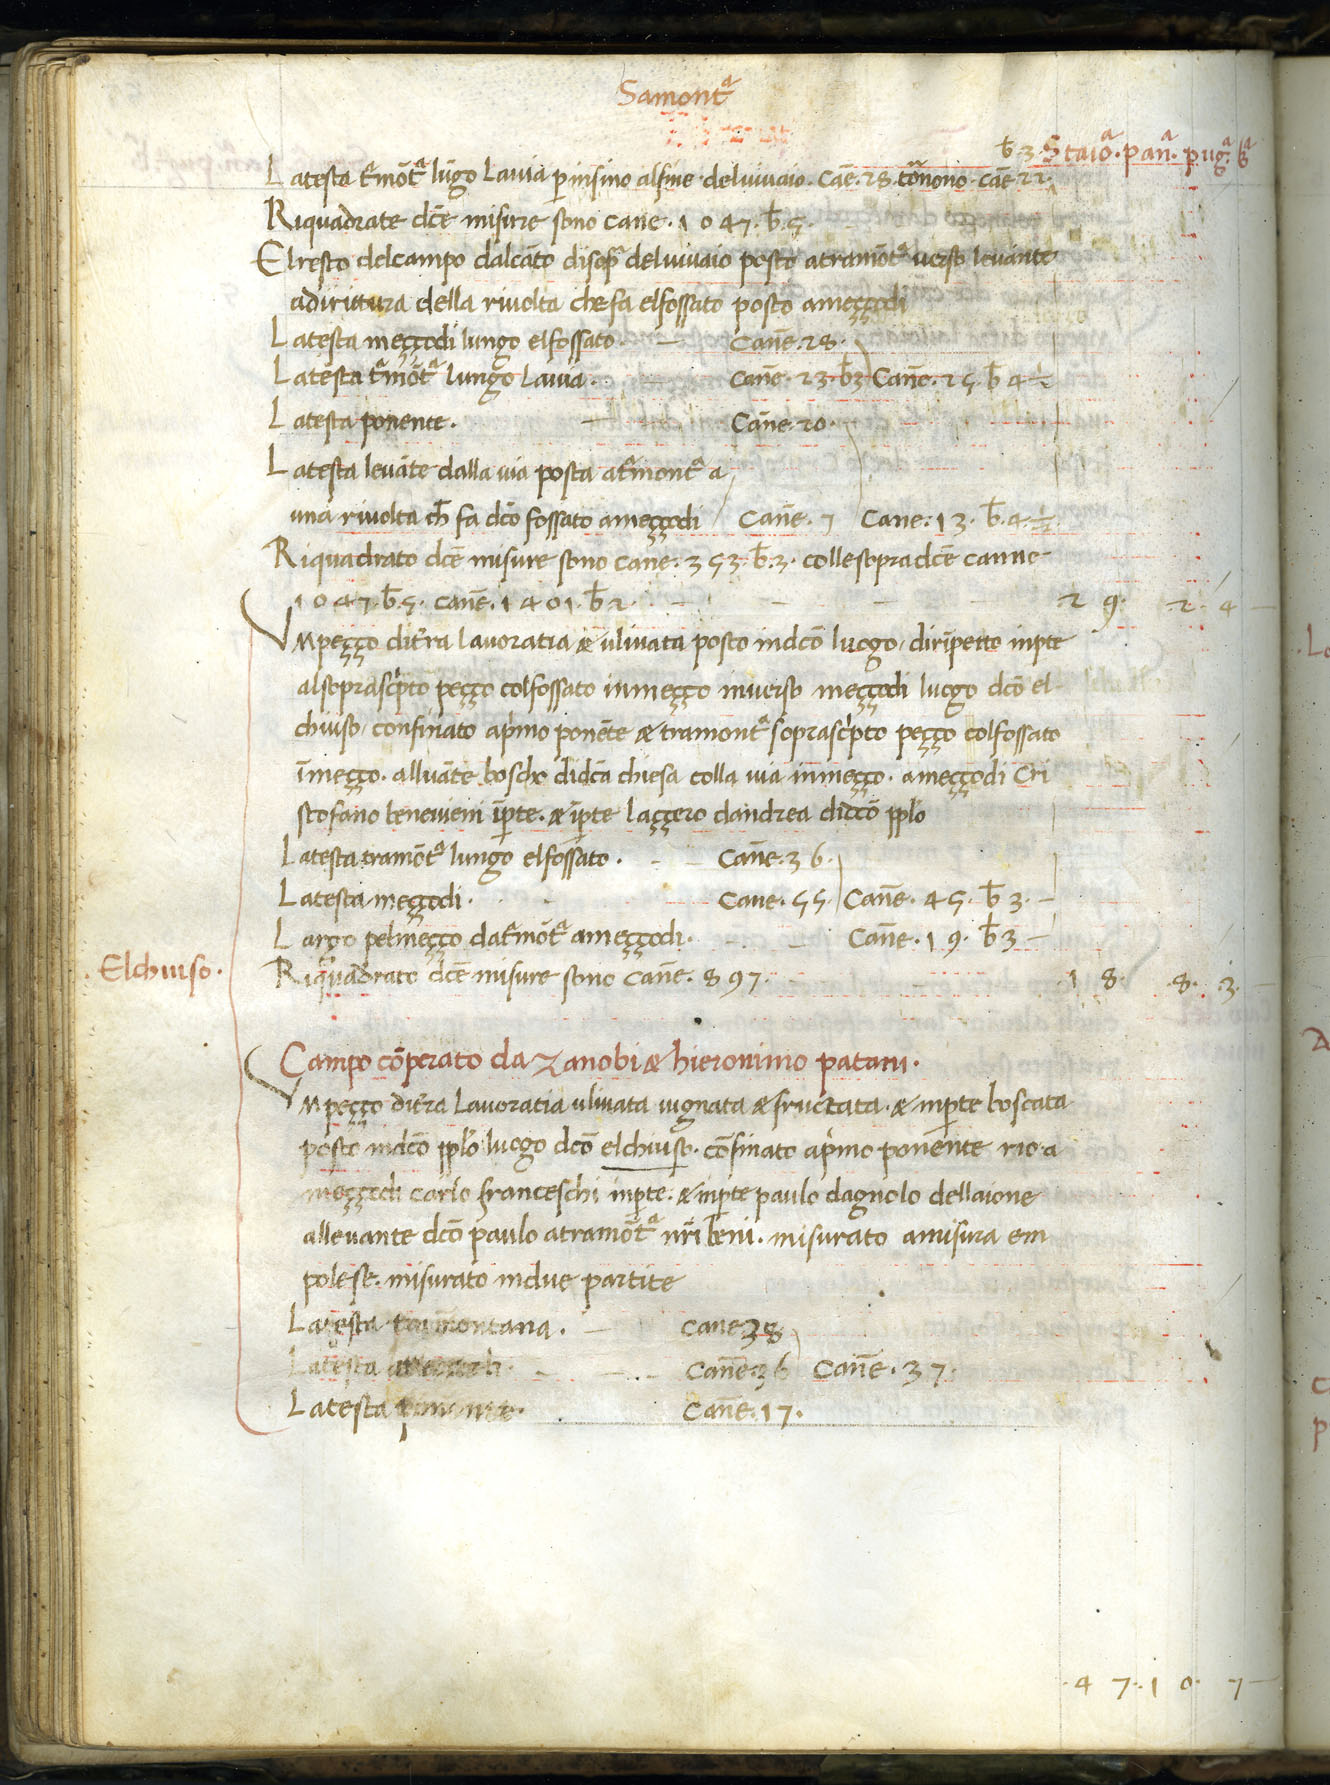 Samontᵃ
b̄ 3 Staioᵃ. panᵃ. pugᵃ. bᵃ
Latesta t̄mōtᵃ lūgo Lauia p insino alfine deluiuaio. cāe. 28. tōrnono. cāe 22.
Riquadrate dc̄e misure sono cane. 1047. b̄. 5.
Elresto delcampo dalcāto disopᵃ deluiuaio posto atramōtᵃ uerso leuante
adirittura della riuolta chefa elfossato posto ameççodi
Latesta meççodi lungo elfossato. Cañe. 28.
Latesta t̄mōtᵃ lungo Lauia. Cañe. 23. b̄3 Cañe. 25. b̄ 4 ½
Latesta ponente. Cañe. 20.
Latesta leuāte dalla uia posta at̄montᵃ a
una riuolta ch̄ fa dcō fossato ameççodi Cañe. 7 Cane. 13. b̄. 4. ½
Riquadrato dcē misure sono cane. 353. b̄. 3. collesopradcē canne
1047. b̄. 5. cañe. 1401. b̄ 2. 2 9. 2. 4
Vnpeççio dit̄ra lauoratia & uliuata posto indcō luogo, dirīpetto inpte
alsoprascṗto peçço colfossato inmeçço inuerso meççodi luogo dcō el
chiuso, confinato apṁo ponēte & tramontᵃ soprascṗto peçço colfossato
īmeçço. alluāte boscho didcā chiesa colla uia inmeçço. ameççodi Cri
stofano beneuieni īpte. & īpte laççero dandrea didcō pplo
Latesta tramōtᵃ lungo elfossato. Cañe. 36.
Latesta meççodi. Cane. 55. Cañe. 45. b̄ 3.
Largo pelmeçço dat̄mōtᵃ ameççodi. Cañe. 19. b̄3
. Elchiuso.
Riquadrato dcē misure sono cañe. 897. 1 8. .8. .3.
Campo cōperato da Zanobi & hieronimo patani.
Vnpeçço dit̄ra Lauoratia uliuata uignata & fructata. & inpte boscata
posto indcō pplo luogo dcō elchiuso. cōfinato apṁo ponente rio. a
meççodi carlo franceschi inpte. & inpte paulo dagnolo dellaione
alleuante dcō paulo atramōtᵃ nr̄i beni. misurato amisura em
polese. misurato indue partite
Latesta tramontana. cane 38
Latesta Cañe. 36 Cañe. 37.
Latesta ponente. Cañe. 17.
. 4 7. 1 0. 7